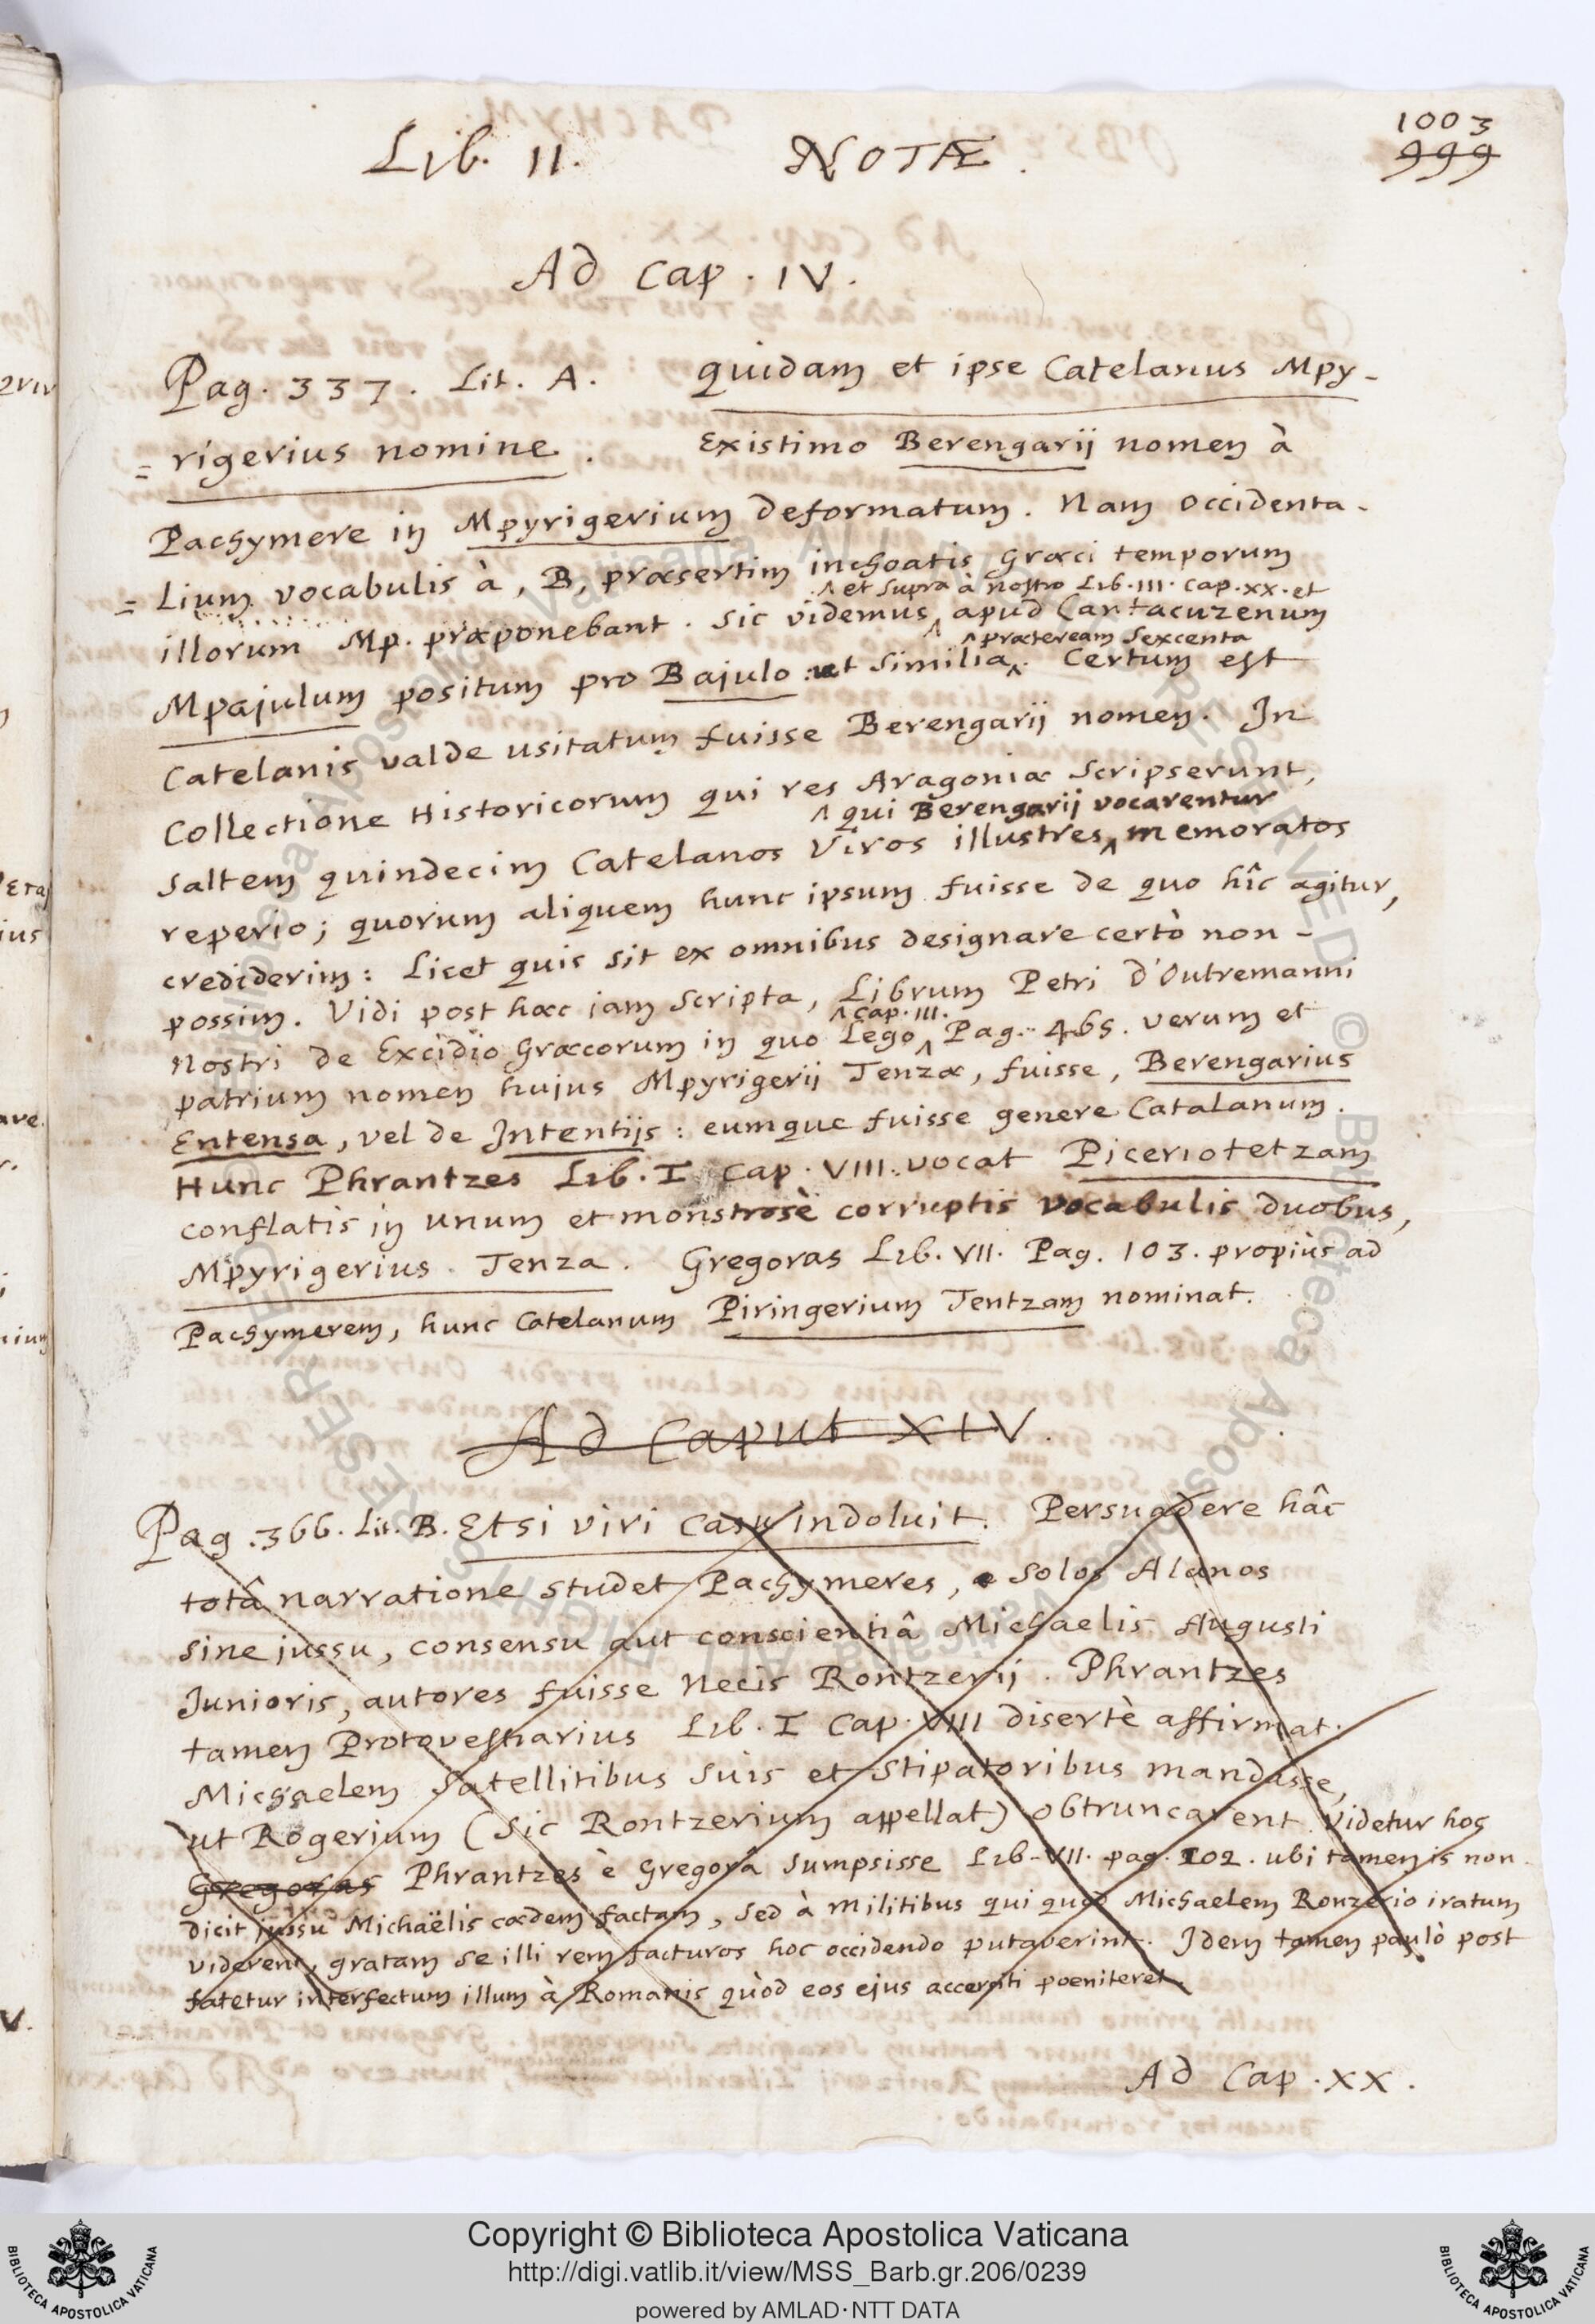 1003
999
Lib. II. NOTÆ.
Ad Cap. IV.
Pag. 337. Lit. A. quidam et ipse Catelanus Mpy-
=rigerius nomine. Existimo Berengarij nomen à
Pachymere in Mpyrigerium deformatum. Nam occidenta-
=lium vocabulis à, B, præsertim inchoatis Græci temporum
^ et supra à nostro Lib. III. cap. xx. et
illorum Mp. præponebant. Sic videmus ^ apud Cantacuzenum
^ præteream sexcenta
Mpajulum positum pro Bajulo: ut similia ^. Certum est
Catelanis valde usitatum fuisse Berengarij nomen. In
Collectione Historicorum qui res Aragoniæ scripserunt,
^ qui Berengarij vocarentur
saltem quindecim Catelanos viros illustres ^ memoratos
reperio; quorum aliquem hunc ipsum fuisse de quo hîc agitur,
crediderim: Licet quis sit ex omnibus designare certò non-
possim. Vidi post hæc iam scripta, Librum Petri d'Outremanni
^ cap. III.
nostri de Excidio Græcorum in quo Lego ^ Pag. 465. verum et
patrium nomen hujus Mpyrigerij Tenzæ, fuisse, Berengarius
Entensa, vel de Intentijs: eumque fuisse genere Catalanum.
Hunc Phrantzes Lib. I Cap. VIII. vocat Piceriotetzam
conflatis in unum et monstrosè corruptis vocabulis duobus,
Mpyrigerius Tenza. Gregoras Lib. VII. Pag. 103. propiùs ad
Pachymerem, hunc Catelanum Piringerium Tentzam nominat.
Ad Caput XIV.
Pag. 366. Lit. B. Etsi viri casu indoluit. Persuadere hâc
totâ narratione studet Pachymeres, solos Alanos
sine jussu, consensu aut conscientiâ Michaelis Augusti
Junioris, autores fuisse necis Rontzerij. Phrantzes
tamen Protovestiarius Lib. I Cap. VIII disertè affirmat
Michaelem satellitibus suis et stipatoribus mandasse,
ut Rogerium (sic Rontzerium appellat) obtruncarent. Videtur hoc
Gregoras Phrantzes è Gregorâ sumpsisse Lib. VII. pag. 102. ubi tamen is non
dicit jussu Michaëlis cædem factam, sed à militibus qui quod Michaelem Ronzerio iratum
viderent, gratam se illi rem facturos hoc occidendo putaverint. Idem tamen paulò post
fatetur interfectum illum à Romanis quòd eos ejus accersiti poeniteret.
Ad Cap. XX.
Copyright © Biblioteca Apostolica Vaticana
http://digi.vatlib.it/view/MSS_Barb.gr.206/0239
powered by AMLAD·NTT DATA